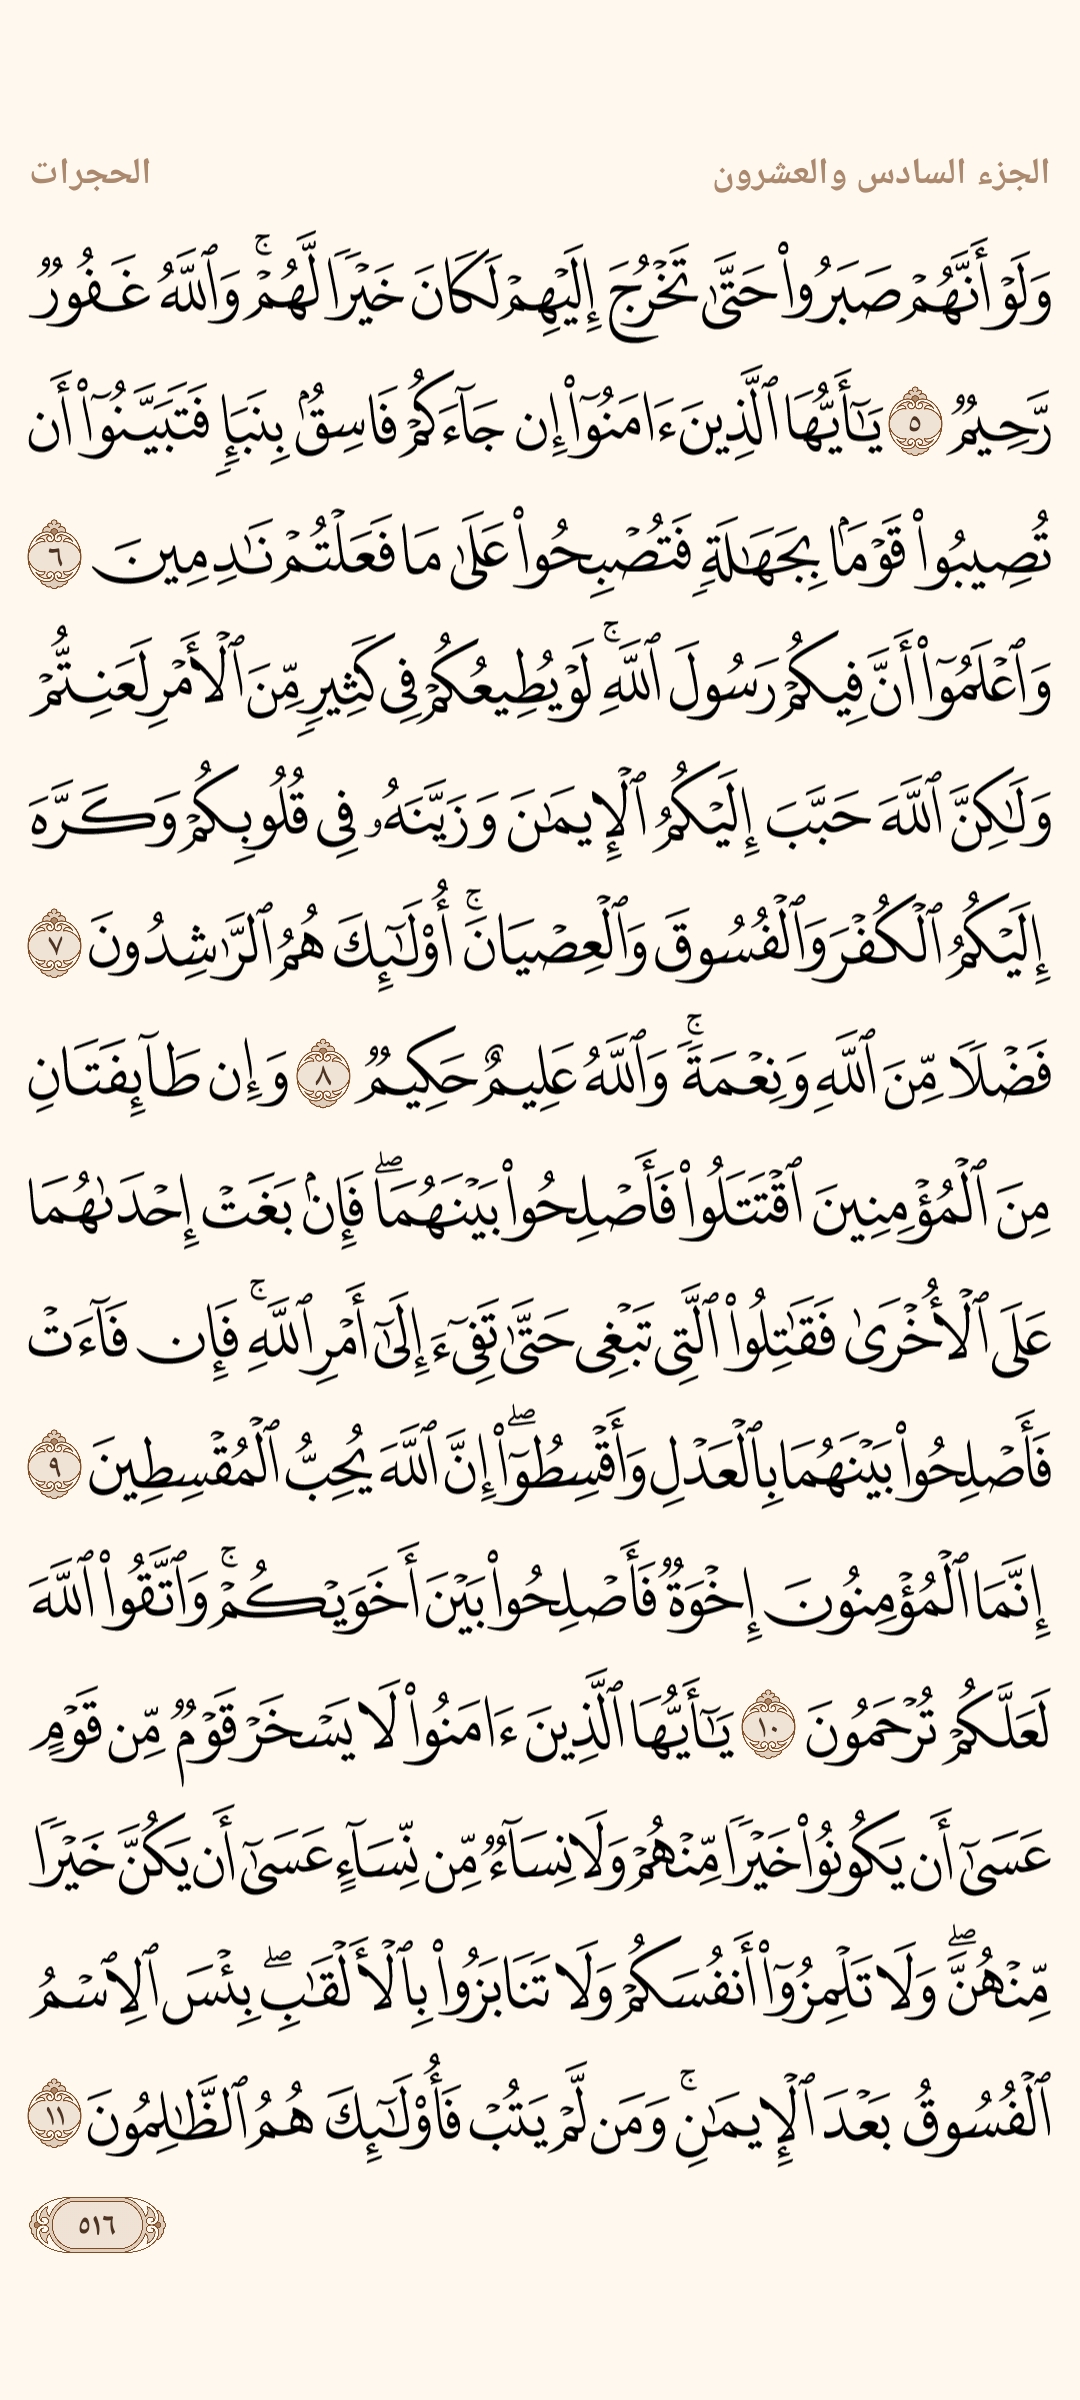 الجزء السادس والعشرون
الحجرات
وَلَوْ أَنَّهُمْ صَبَرُوا۟ حَتَّىٰ تَخْرُجَ إِلَيْهِمْ لَكَانَ خَيْرًا لَّهُمْ ۚ وَٱللَّهُ غَفُورٌ
رَّحِيمٌ ٥ يَـٰٓأَيُّهَا ٱلَّذِينَ ءَامَنُوٓا۟ إِن جَآءَكُمْ فَاسِقٌۢ بِنَبَإٍ فَتَبَيَّنُوٓا۟ أَن
تُصِيبُوا۟ قَوْمًۢا بِجَهَـٰلَةٍ فَتُصْبِحُوا۟ عَلَىٰ مَا فَعَلْتُمْ نَـٰدِمِينَ ٦
وَٱعْلَمُوٓا۟ أَنَّ فِيكُمْ رَسُولَ ٱللَّهِ ۚ لَوْ يُطِيعُكُمْ فِى كَثِيرٍ مِّنَ ٱلْأَمْرِ لَعَنِتُّمْ
وَلَـٰكِنَّ ٱللَّهَ حَبَّبَ إِلَيْكُمُ ٱلْإِيمَـٰنَ وَزَيَّنَهُۥ فِى قُلُوبِكُمْ وَكَرَّهَ
إِلَيْكُمُ ٱلْكُفْرَ وَٱلْفُسُوقَ وَٱلْعِصْيَانَ ۚ أُو۟لَـٰٓئِكَ هُمُ ٱلرَّٰشِدُونَ ٧
فَضْلًا مِّنَ ٱللَّهِ وَنِعْمَةً ۚ وَٱللَّهُ عَلِيمٌ حَكِيمٌ ٨ وَإِن طَآئِفَتَانِ
مِنَ ٱلْمُؤْمِنِينَ ٱقْتَتَلُوا۟ فَأَصْلِحُوا۟ بَيْنَهُمَا ۖ فَإِنۢ بَغَتْ إِحْدَىٰهُمَا
عَلَى ٱلْأُخْرَىٰ فَقَـٰتِلُوا۟ ٱلَّتِى تَبْغِى حَتَّىٰ تَفِىٓءَ إِلَىٰٓ أَمْرِ ٱللَّهِ ۚ فَإِن فَآءَتْ
فَأَصْلِحُوا۟ بَيْنَهُمَا بِٱلْعَدْلِ وَأَقْسِطُوٓا۟ ۖ إِنَّ ٱللَّهَ يُحِبُّ ٱلْمُقْسِطِينَ ٩
إِنَّمَا ٱلْمُؤْمِنُونَ إِخْوَةٌ فَأَصْلِحُوا۟ بَيْنَ أَخَوَيْكُمْ ۚ وَٱتَّقُوا۟ ٱللَّهَ
لَعَلَّكُمْ تُرْحَمُونَ ١٠ يَـٰٓأَيُّهَا ٱلَّذِينَ ءَامَنُوا۟ لَا يَسْخَرْ قَوْمٌ مِّن قَوْمٍ
عَسَىٰٓ أَن يَكُونُوا۟ خَيْرًا مِّنْهُمْ وَلَا نِسَآءٌ مِّن نِّسَآءٍ عَسَىٰٓ أَن يَكُنَّ خَيْرًا
مِّنْهُنَّ ۖ وَلَا تَلْمِزُوٓا۟ أَنفُسَكُمْ وَلَا تَنَابَزُوا۟ بِٱلْأَلْقَـٰبِ ۖ بِئْسَ ٱلِٱسْمُ
ٱلْفُسُوقُ بَعْدَ ٱلْإِيمَـٰنِ ۚ وَمَن لَّمْ يَتُبْ فَأُو۟لَـٰٓئِكَ هُمُ ٱلظَّـٰلِمُونَ ١١
٥١٦